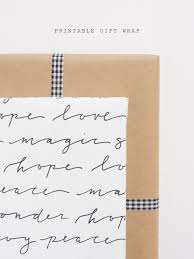 PRINTABLE GIFT WRAP
hope love
magic
hope lo
peace ma
onder hop
oy peace